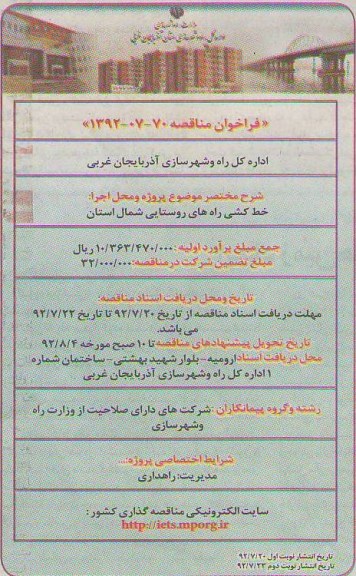 وزارت راه و شهرسازی
اداره کل راه و شهرسازی استان آذربایجان غربی
«فراخوان مناقصه ۷۰-۰۷-۱۳۹۲»
اداره کل راه وشهرسازی آذربایجان غربی
شرح مختصر موضوع پروژه ومحل اجرا:
خط کشی راه های روستایی شمال استان
جمع مبلغ برآورد اولیه: ۱۰/۳۶۳/۴۷۰/۰۰۰ ریال
مبلغ تضمین شرکت در مناقصه: ۳۲/۰۰۰/۰۰۰
تاریخ ومحل دریافت اسناد مناقصه:
مهلت دریافت اسناد مناقصه از تاریخ ۹۲/۷/۲۰ تا تاریخ ۹۲/۷/۲۲
می باشد.
تاریخ تحویل پیشنهادهای مناقصه تا ۱۰ صبح مورخه ۹۲/۸/۴
محل دریافت اسناد ارومیه-بلوار شهید بهشتی-ساختمان شماره
۱ اداره کل راه وشهرسازی آذربایجان غربی
رشته وگروه پیمانگاران: شرکت های دارای صلاحیت از وزارت راه
وشهرسازی
شرایط اختصاصی پروژه:...
مدیریت: راهداری
سایت الکترونیکی مناقصه گذاری کشور:
http://iets.mporg.ir
تاریخ انتشار نوبت اول ۹۲/۷/۲۰
تاریخ انتشار نوبت دوم ۹۲/۷/۲۳